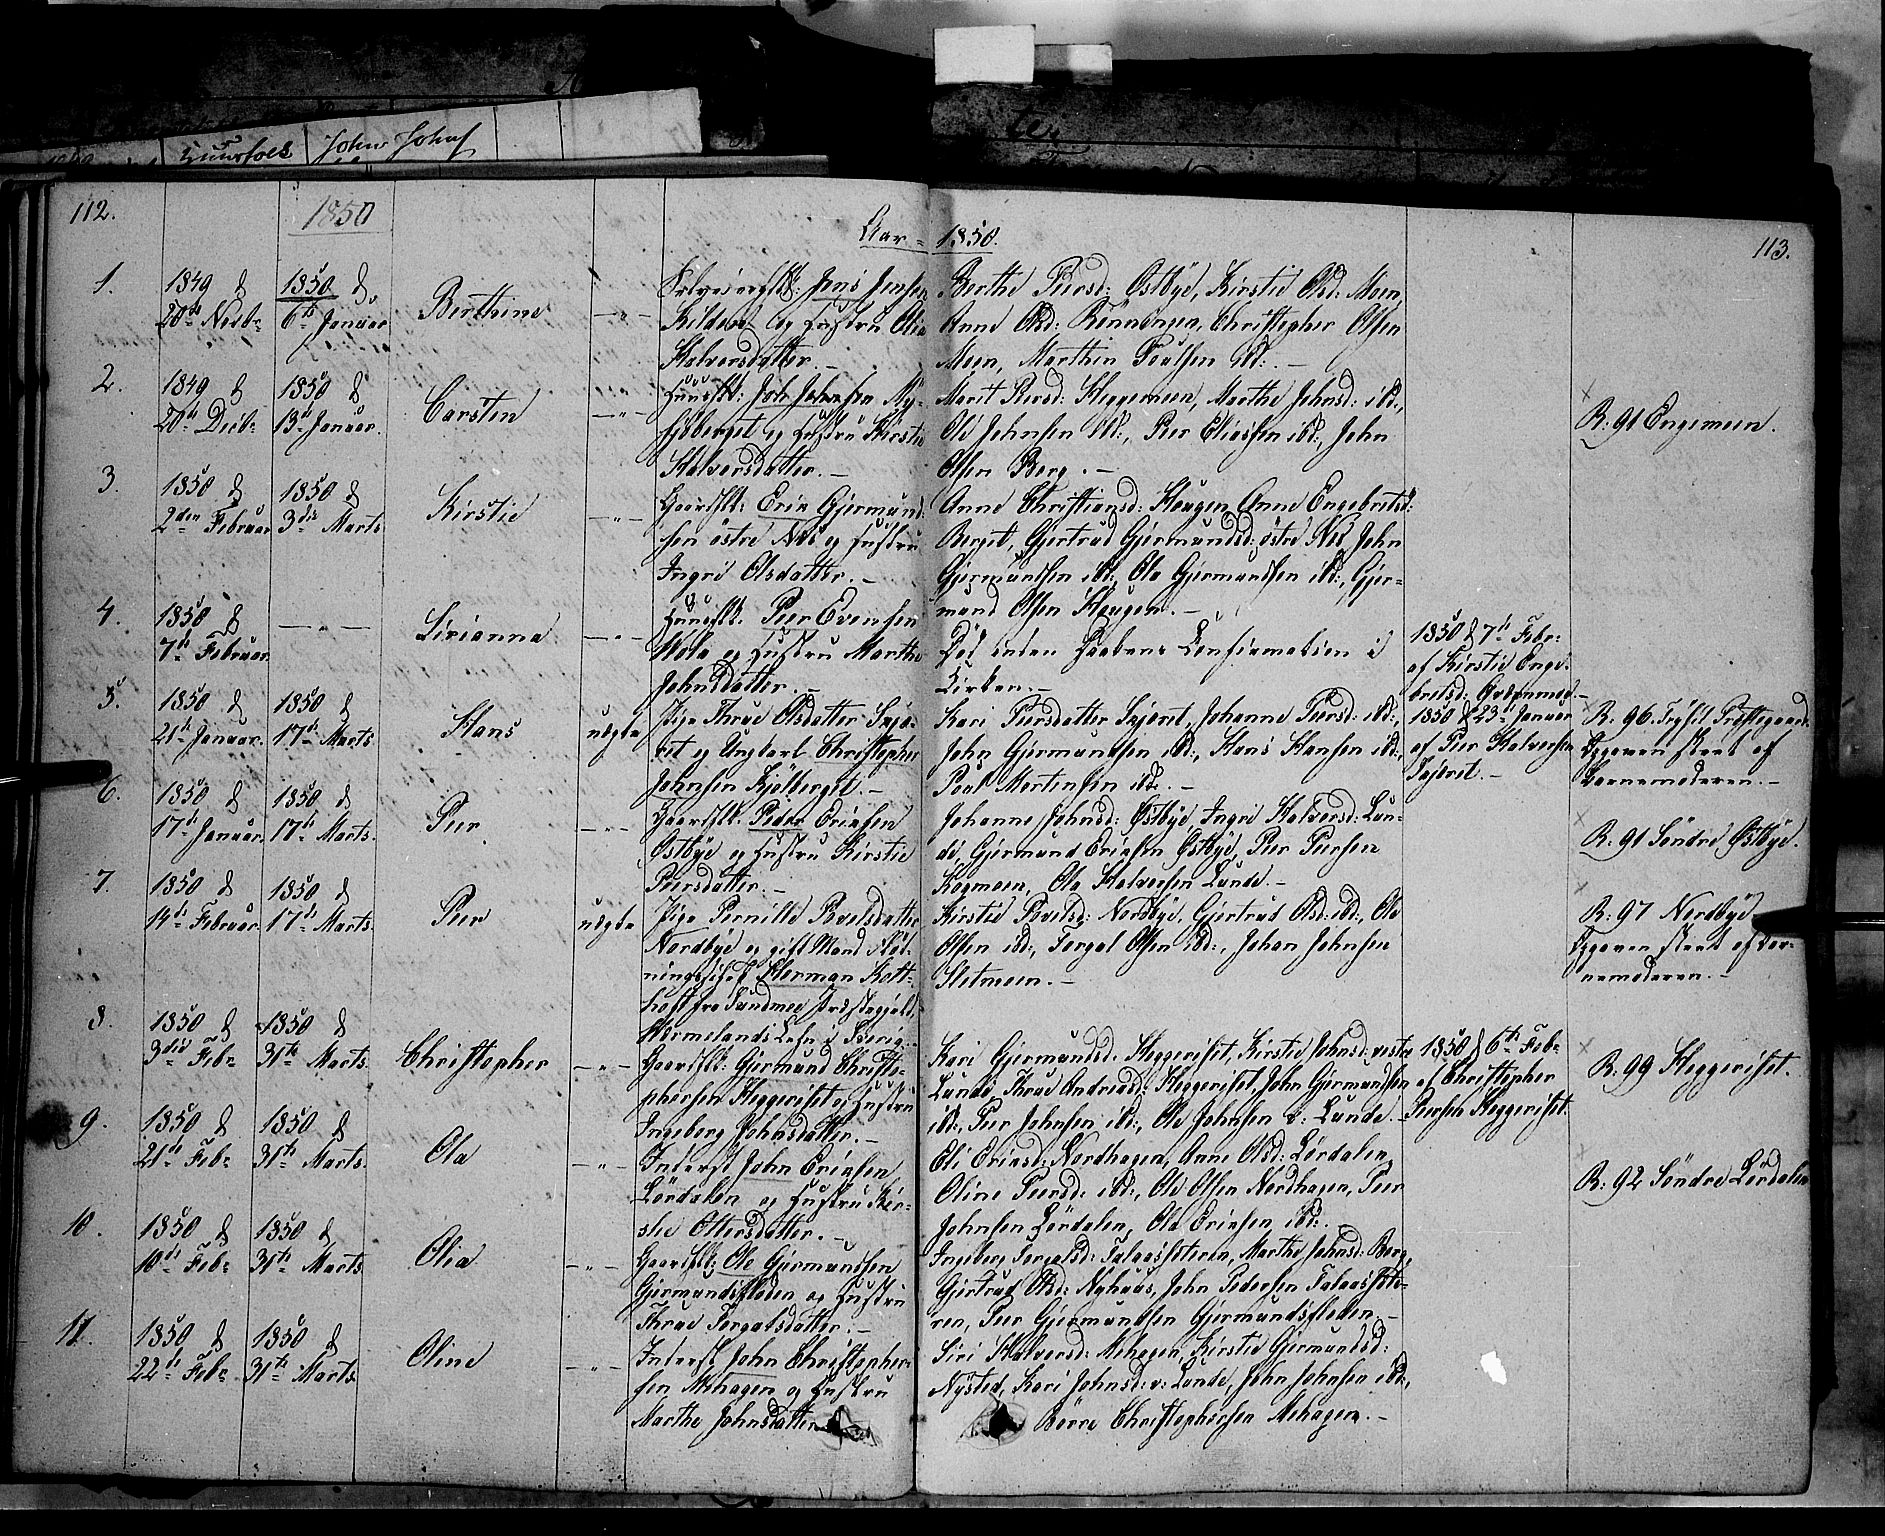 Huusfolk John Johns
112.
1850
Aar = 1850.
113.
1.
1849 d
20de Novbr
1850 d
6te Januar
Berthine
— " —
Selveierfolk: Jens Jensen
Kilden og Hustru Olia
Halvorsdatter. —
Berthe Peersd: Östbye, Kirstie Olsd: Moen,
Anne Olsd: Rönningen, Christopher Olsen
Moen, Marthin Poulsen ibd: —
2.
1849 d
20de Decbr
1850 d
13de Januar
Carsten
— " —
Huusfolk: Johnsen
og Hustru Kirstie
Halvorsdatter. —
Marit Persd: Heggemoen, Marthe Johnsd: ibd:,
Ole Johnsen ibd:, Peer Eliassen ibd:, John
Olsen Berg. —
R: 91 Engemoen.
3.
1850 d
2den Februar
1850 d
3die Marts
Kirstie
— " —
Gaardfolk: Eric Gjermund-
sen östre Næs og Hustru
Ingrie Olsdatter. —
Anne Christiansd: Haugen, Anne Engebretsd:
Berget, Gjertrud Gjermundsd: östre Næs, John
Gjermundsen ibd:, Ola Gjermundsen ibd:, Gjer-
mund Olsen Haugen. —
4.
1850 d
7de Februar
— " —
Sirianna
— " —
Huusfolk: Peer Evensen
og Hustru Marthe
Johnsdatter. —
Död inden Daabens Confirmation i
Kirken. —
1850 d 7de Febr:
af Kirstie Enge-
bretsd:
5.
1850 d
21de Januar
1850 d
17de Marts
Hans
uægte
Pige Thrue Olsdatter Sxjæ-
ret og Ungkarl Christopher
Johnsen Kjölberget. —
Kari Peersdatter Sxjæret, Johanne Peersd: ibd:,
John Gjermundsen ibd:, Hans Hansen ibd:,
Poul Mortensen ibd: —
1850 d 23de Januar
af Peer Halvorsen
Sxjæret. —
R: 96. Trysil Præstegaard.
Opgaven skeet af
Barnemoderen. —
6.
1850 d
17de Januar
1850 d
17de Marts
Peer
— " —
Gaardfolk: Peder Ericsen
Östbye og Hustru Kirstie
Peersdatter. —
Johanne Johnsd: Östbye, Ingrie Halvorsd: Lun-
de, Gjermund Ericsen Östbye, Peer Peersen
Kogmoen, Ola Halvorsen Lunde. —
R: 91 Söndre Östbye.
7.
1850 d
14de Februar
1850 d
17de Marts
Peer
uægte
Pige Pernille Povelsdatter
Nordbye og gift Mand
Herman
fra Præstegjeld
Vermelands Lehn i Sverig. —
Kirstie Povelsd: Nordbye, Gjertrud Olsd: ibd:, Ole
Olsen ibd:, Torgal Olsen ibd:, Johan Johnsen
R: 97 Nordbye
Opgaven skeet af Bar-
nemoderen. —
8.
1850 d
3die Febr
1850 d
31te Marts
Christopher
— " —
Gaardfolk: Gjermund Christo-
phersen Heggeriset og Hustru
Ingeberg Johnsdatter. —
Kari Gjermundsd: Heggeriset, Kirstie Johnsd: vestre
Lunde, Thrue Andreasd: Heggeriset, John Gjermundsen
ibd:, Peer Johnsen ibd:, Ole Johnsen v: Lunde. —
1850 d 6te Febr
af Christopher
Peersen Heggeriset.
R: 99 Heggeriset.
9.
1850 d
21de Febr
1850 d
31te Marts
Ola
— " —
Inderst John Ericsen
Lördalen og Hustru Kir-
stie Ottersdatter. —
Eli Ericsd: Nordhagen, Anne Olsd: Lördalen,
Oline Peersd: ibd:, Ole Olsen Nordhagen, Peer
Johnsen Lördalen, Ola Ericsen ibd:
R: 92 Söndre Lördalen
10.
1850 d
10de Febr
1850 d
31te Marts
Olia
— " —
Gaardfolk: Ole Gjermundsen
Gjermundsfloden og Hustru
Thrue Torgalsdatter. —
Ingeberg Torgalsd: Galaassæteren, Marthe Johnsd: Berg,
Gjertrud Olsd: Nyhuus, John Pedersen Galaassæte-
ren, Peer Gjermundsen Gjermundsfloden. —
11.
1850 d
22de Febr
1850 d
31te Marts
Oline
— " —
Inderst John Christopher-
sen Mehagen og Hustru
Marthe Johnsdatter
Siri Halvorsd: Mehagen, Kirstie Gjermundsd:
Nysted, Kari Johnsd: v: Lunde, John Johnsen ibd:,
Börre Christophersen Mehagen. —